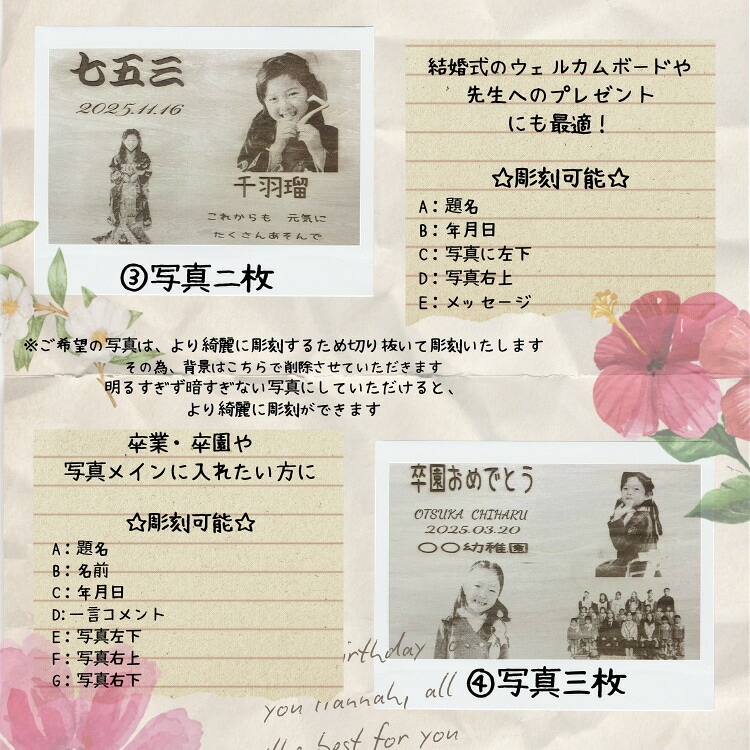 七五三
2025.11.16
千羽瑠
これからも 元気に
たくさんあそんで
③写真二枚
結婚式のウェルカムボードや
先生へのプレゼント
にも最適！
☆彫刻可能☆
A：題名
B：年月日
C：写真に左下
D：写真右上
E：メッセージ
※ご希望の写真は、より綺麗に彫刻するため切り抜いて彫刻いたします
その為、背景はこちらで削除させていただきます
明るすぎず暗すぎない写真にしていただけると、
より綺麗に彫刻ができます
卒業・卒園や
写真メインに入れたい方に
☆彫刻可能☆
A：題名
B：名前
C：年月日
D:一言コメント
E：写真左下
F：写真右上
G：写真右下
卒園おめでとう
OTSUKA CHIHARU
2025.03.20
〇〇幼稚園
④写真三枚
you Hannah, all
best for you